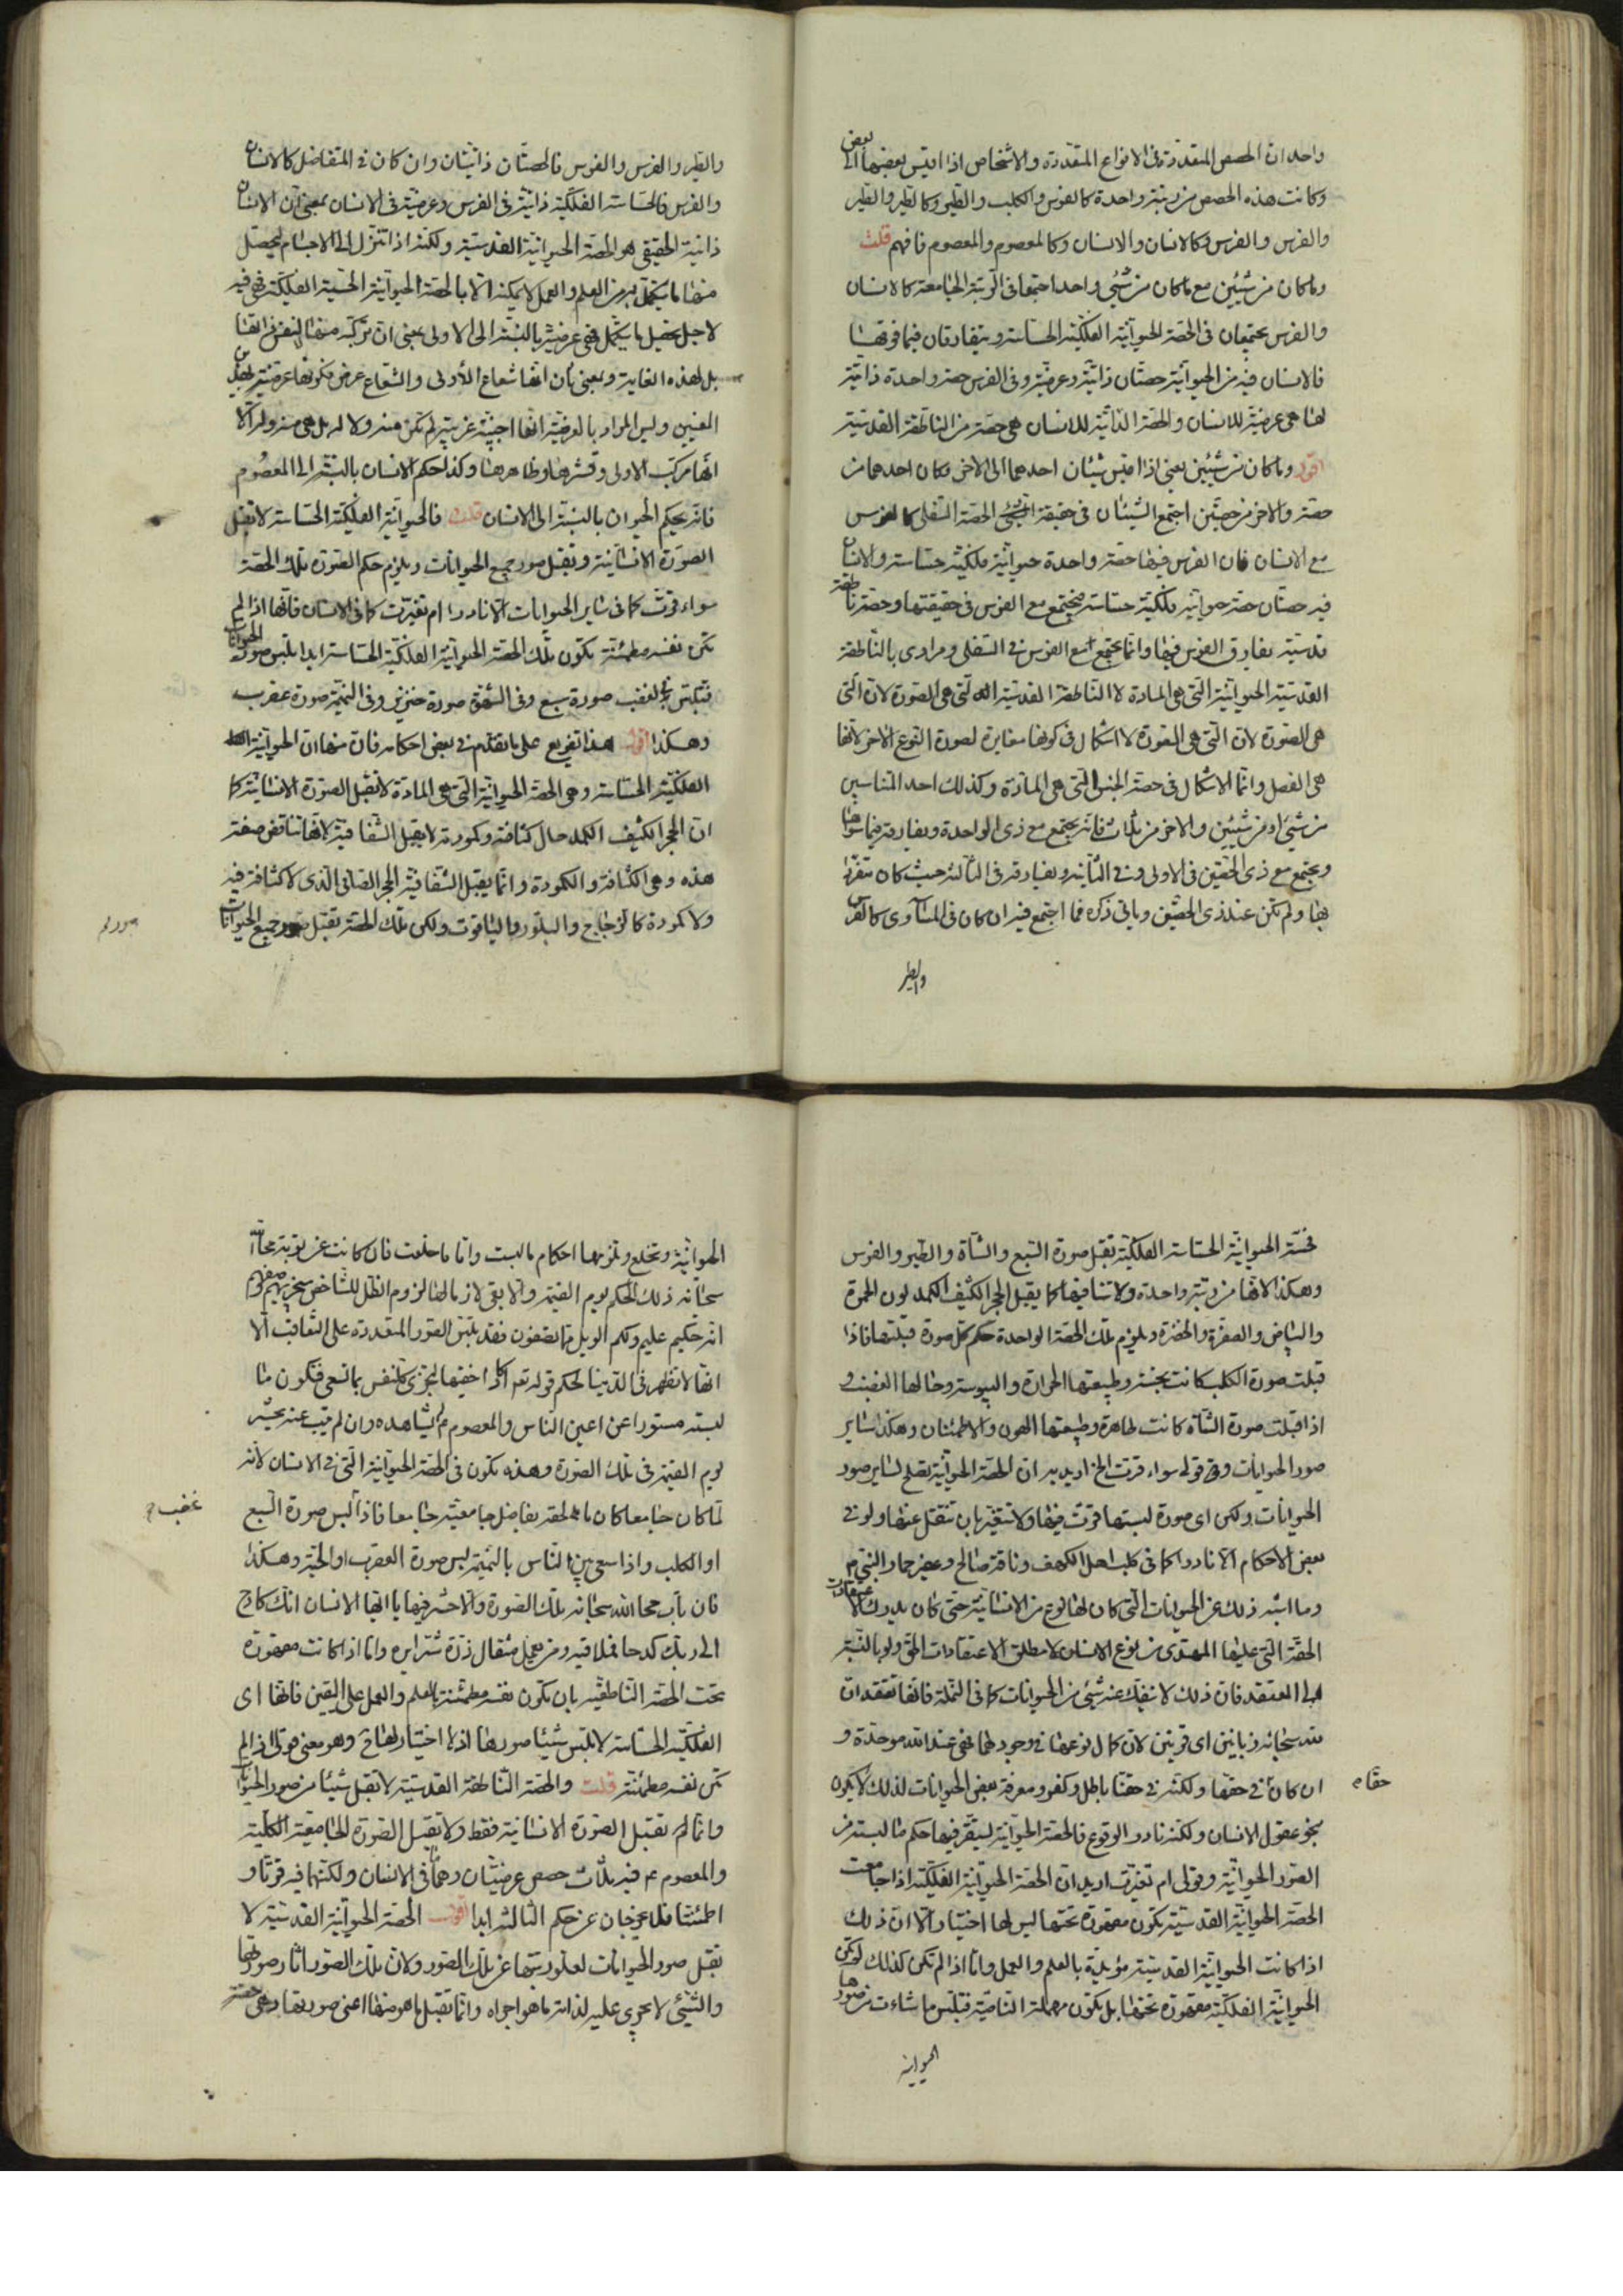 واحد ان الحصص المتعددة فى الانواع المتعددة والاشخاص اذا قيس بعضها الى بعض
وكانت هذه الحصص من رتبة واحدة كالفرس والكلب والطير وكالطير والطير
والفرس والفرس وكالانسان والانسان وكالمعصوم والمعصوم فافهم قلت
وما كان من شيئين مع ما كان من شىء واحد اجتمعا فى الرتبة الجامعة كالانسان
والفرس يجتمعان فى الحصة الحيوانية الفلكية الحساسة ويتفارقان فيما فوقها
فالانسان فيه من الحيوانية حصتان ذاتية وعرضية وفى الفرس حصة واحدة ذاتية
لها هى عرضية للانسان والحصة الذاتية للانسان هى حصة من الناطقة القدسية
اقول وما كان من شيئين يعنى اذا قيس شيئان احدهما الى الاخر وكان احدهما من
حصة والاخر من حصتين اجتمع الشيئان فى حقيقة الحصة السفلى كالفرس
مع الانسان فان الفرس فيها حصة واحدة حيوانية فلكية حساسة والانسان
فيه حصتان حصة حيوانية فلكية حساسة فيجتمع مع الفرس فى حقيقتها وحصة ناطقة
قدسية يفارق الفرس فيها وانما يجتمع مع الفرس فى السفلى ومرادى بالناطقة
القدسية الحيوانية التى هى المادة لا الناطقة القدسية التى هى الصورة لان التى
هى الصورة لان التى هى الصورة لا اشكال فى كونها مغايرة لصورة النوع الاخر لانها
هى الفصل وانما الاشكال فى حصة الجنس التى هى المادة وكذلك احد المتناسبين
من شىء او من شيئين والاخر من ثلث فانه يجتمع مع ذى الواحدة ويفارقه فيما سواها
ويجتمع مع ذى الحصتين فى الاولى وفى الثانية ويفارقه فى الثالثة حيث كان متفردا
بها ولم تكن عند ذى الحصتين وياتى ذكره فما اجتمع فيه ان كان فى المتساوى كالفرس
والطير
والطير والفرس والفرس فالحصتان ذاتيتان وان كان فى المتفاضل كالانسان
والفرس فالحساسة الفلكية ذاتية فى الفرس وعرضية فى الانسان بمعنى ان الانسان
ذاتية الحقيقى هو الحصة الحيوانية القدسية ولكنه اذا تنزل الى الاجسام ليحصل
منها ما يتكمل به من العلم والعمل لا يمكنه الا بالحصة الحيوانية الحسية الفلكية فهى فيه
لاجل تحصيل ما يتكمل فهى عرضية بالنسبة الى الاولى يعنى ان تركبه منها ليس ذاتيا
بل لهذه الغاية وبمعنى بان انها شعاع الأولى والشعاع عرض فكونها عرضية بهذين
المعنيين وليس المراد بالعرضية انها اجنبية غريبة لم تكن منه ولا له بل هى منه وله الا
انها مركب الاولى وقشرها وظاهرها وكذا حكم الانسان بالنسبة الى المعصوم
فانه كحكم الحيوان بالنسبة الى الانسان قلت فالحيوانية الفلكية الحساسة لا تقبل
الصورة الانسانية وتقبل صور جميع الحيوانات ويلزم حكم الصورة تلك الحصة
سواء قرت كما فى ساير الحيوانات الا نادرا ام تغيرت كما فى الانسان فانها اذا لم
تكن نفسه مطمئنة تكون تلك الحصة الحيوانية الفلكية الحساسة ابدا تلبس صور الحيوانات
فتلبس فى الغضب صورة سبع وفى الشهوة صورة خنزير وفى النميمة صورة عقرب
وهكذا اقول هذا تفريع على ما تقدم فى بعض احكامه فان منها ان الحيوانية
الفلكية الحساسة وهى الحصة الحيوانية التى هى المادة لا تقبل الصورة الانسانية كما
ان الحجر الكثيف الكمد حال كثافته وكمودته لا يقبل الشفافية لانها تناقض صفة
هذه وهى الكثافة والكمودة وانما يقبل الشفافية الحجر الصافى الذى لا كثافة فيه
ولا كمودة كالزجاج والبلور والياقوت ولكن تلك الحصة تقبل صور جميع الحيوانات
فحصة الحيوانية الحساسة الفلكية تقبل صورة السبع والشاة والطير والفرس
وهكذا لانها من رتبة واحدة ولا تنافيها كما يقبل الحجر الكثيف الكمد لون الحمرة
والبياض والصفرة والخضرة ويلزم تلك الحصة الواحدة حكم كل صورة قبلتها فاذا
قبلت صورة الكلب كانت نجسة وطبيعتها الحرارة واليبوسة وحالها الغضب و
اذا قبلت صورة الشاة كانت طاهرة وطبيعتها الهون والاطمئنان وهكذا ساير
صور الحيوانات وفى قولى سواء قرت الخ اريد به ان الحصة الحيوانية تصلح لساير صور
الحيوانات ولكن اى صورة لبستها قرت فيها ولا تتغير بان تنتقل عنها ولو فى
بعض الاحكام الا نادرا كما فى كلب اهل الكهف وناقة صالح وعفير حمار النبى ص
وما اشبه ذلك من الحيوانات التى كان لها نوع من الانسانية حتى كان يدرك الاعتقادات
الحقة التى عليها المهتدى من نوع الانسان لا مطلق الاعتقادات الحق ولو بالنسبة
الى المعتقد فان ذلك لا ينفك عنه شىء من الحيوانات كما فى النملة فانها تعتقد ان
لله سبحانه زبانيتين اى قرنين لان كمال نوعها فى وجودهما فهى عند الله موحدة و
ان كان فى حقها حقا م ولكنه فى حقنا باطل وكفر ومعرفة بعض الحيوانات لذلك لا يكون
بنحو عقول الانسان ولكنه نادر الوقوع فالحصة الحيوانية ليستقر فيها حكم ما لبسته من
الصور الحيوانية وقولى ام تغيرت اريد ان الحصة الحيوانية الفلكية اذا جامعت
الحصة الحيوانية القدسية تكون مقهورة تحتها ليس لها اختيار الا ان ذلك
اذا كانت الحيوانية القدسية مؤيدة بالعلم والعمل واما اذا لم تكن كذلك لم تكن
الحيوانية الفلكية مقهورة تحتها بل تكون مهملة الناصية فتلبس ما شاءت من صورها
الحيوانية
الحيوانية وتخلع ويلزمها احكام ما لبست واما ما خلعت فان كانت عن توبة محا الله
سبحانه ذلك الحكم يوم القيمة والا بقى لازما لها لزوم الظل للشاخص سيجزيهم وصفهم
انه حكيم عليم ولكم الويل مما تصفون فقد تلبس الصور المتعددة على التعاقب الا
انها لا تظهر فى الدنيا لحكم قوله تعالى اكاد اخفيها لتجزى كل نفس بما تسعى فتكون ما
لبسته مستورا عن اعين الناس والمعصوم ع يشاهده وان لم يتب عنه يحشر
يوم القيمة فى تلك الصورة وهذه تكون فى الحصة الحيوانية التى فى الانسان لانه
لما كان جامعا كان ما لحقه بفاضل جامعيته جامعا فاذا غضب لبس صورة السبع
او الكلب واذا سعى بين الناس بالنميمة لبس صورة العقرب او الحية وهكذا
فان تاب محا الله سبحانه تلك الصورة والا حشر فيها يا ايها الانسان انك كادح
الى ربك كدحا فملاقيه ومن يعمل مثقال ذرة شرا يره واما اذا كانت مقهورة
تحت الحصة الناطقية بان تكون نفسه مطمئنة بالعلم والعمل على اليقين فانها اى
الفلكية الحساسة لا تلبس شيئا من صورها اذ لا اختيار لها ح وهو معنى قولى اذا لم
تكن نفسه مطمئنة قلت والحصة الناطقة القدسية لا تقبل شيئا من صور الحيوانات
وانما تقبل الصورة الانسانية فقط ولا تقبل الصورة الجامعية الكلية
والمعصوم ع فيه ثلث حصص عرضيتان وهما فى الانسان ولكنهما فيه قرتا و
اطمئنتا فلا يخرجان عن حكم الثالثة ابدا اقول الحصة الحيوانية القدسية لا
تقبل صور الحيوانات لعلو رتبتها عن تلك الصور ولان تلك الصور اثار صورتها
والشىء لا يجرى عليه لذاته ما هو اجراه وانما تقبل ما هو منها اعنى صورتها وهى حصة